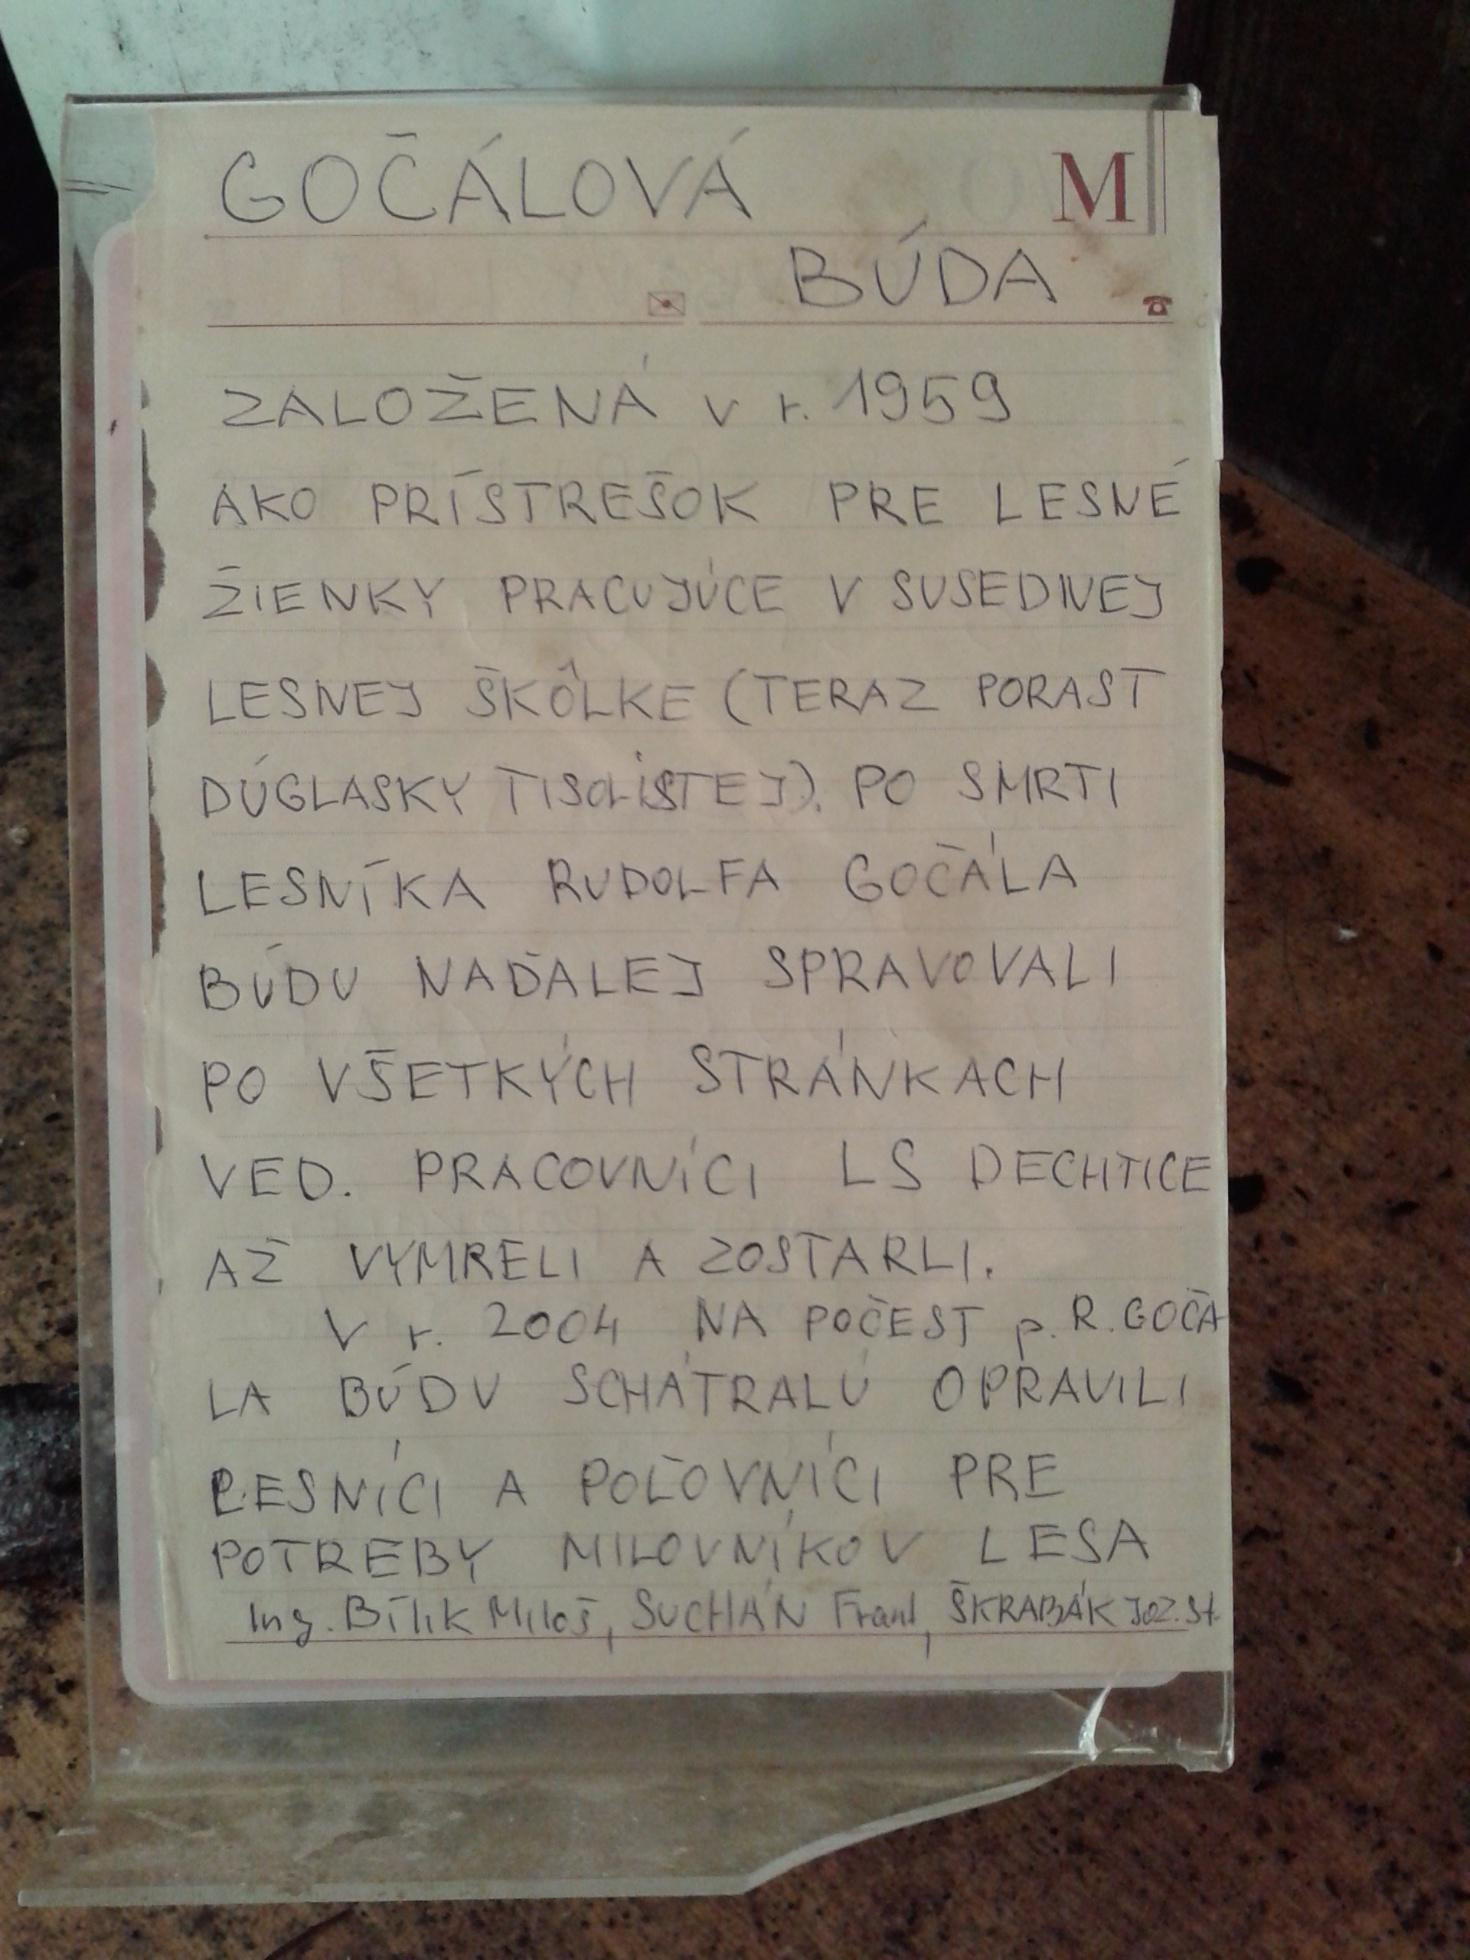 GOČÁLOVÁ M
BÚDA
ZALOŽENÁ v r. 1959
AKO PRÍSTREŠOK PRE LESNÉ
ŽIENKY PRACUJÚCE V SUSEDNEJ
LESNEJ ŠKÔLKE (TERAZ PORAST
DÚGLASKY TISOLISTEJ). PO SMRTI
LESNÍKA RUDOLFA GOČÁLA
BÚDU NAĎALEJ SPRAVOVALI
PO VŠETKÝCH STRÁNKACH
VED. PRACOVNÍCI LS DECHTICE
AŽ VYMRELI A ZOSTARLI.
V r. 2004 NA POČEST p. R. GOČÁ
LA BÚDU SCHÁTRALÚ OPRAVILI
LESNÍCI A POĽOVNÍCI PRE
POTREBY MILOVNÍKOV LESA
Ing. BÍLIK Miloš, SUCHÁN Frant, ŠKRABÁK JOZ. St.